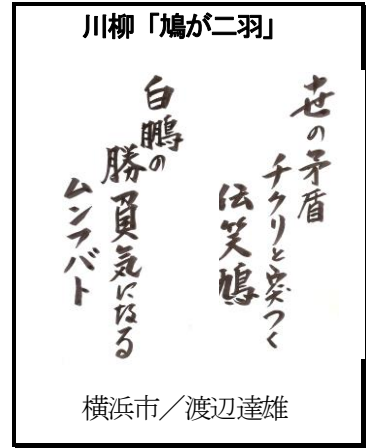 川柳「鳩が二羽」
世の矛盾
チクリと突つく
伝笑鳩
白鵬の
勝負気になる
ムンフバト
横浜市／渡辺達雄